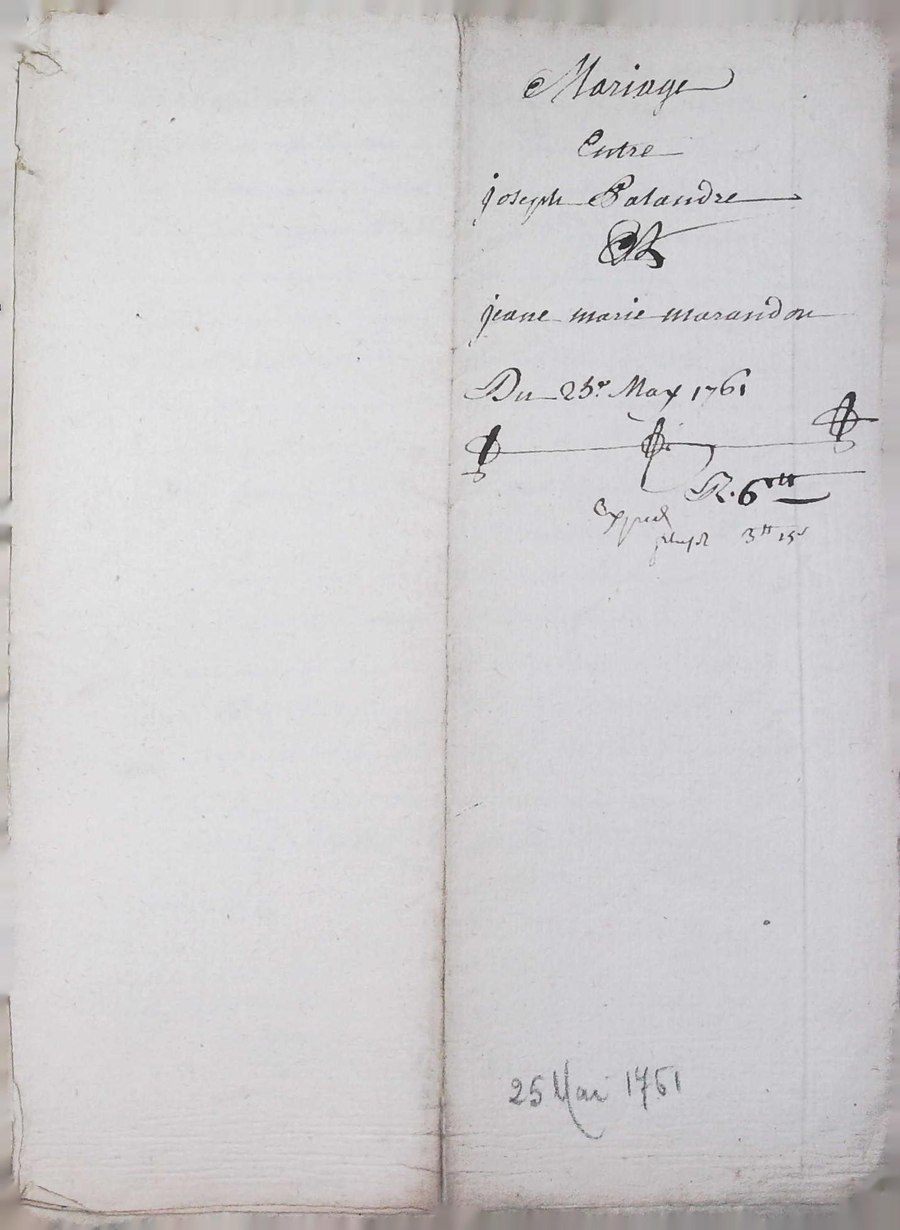 Mariage
Entre
joseph Palandre
Et
jeane marie marandon
Du 25e May 1761
R. 6tt
exped
3tt 15s
25 Mai 1761